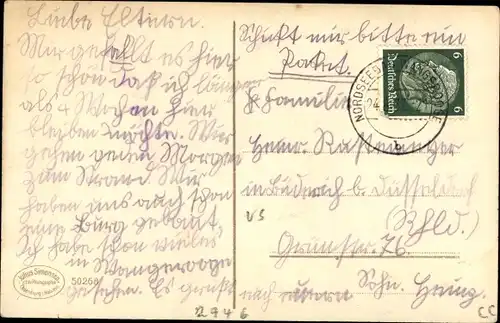 Liebe Eltern.
Mir gefällt es hier
so schön daß ich länger
als 4 Wochen hier
bleiben möchte. Wir
gehen jeden Morgen
zum Strand. Wir
haben uns auch schon
eine Burg gebaut,
Ich habe schon vieles
in Wangerooge
gesehen. Es grüßt
Schickt mir bitte ein
Paket.
Familie
Herrn
in Büderich b. Düsseldorf
(Rhld.)
Grünstr. 76.
Sohn Heinz.
NORDSEEBAD WANGEROOGE
24
b
Deutsches Reich
6
6
Julius Simonsen
50268
VS
2946
CC